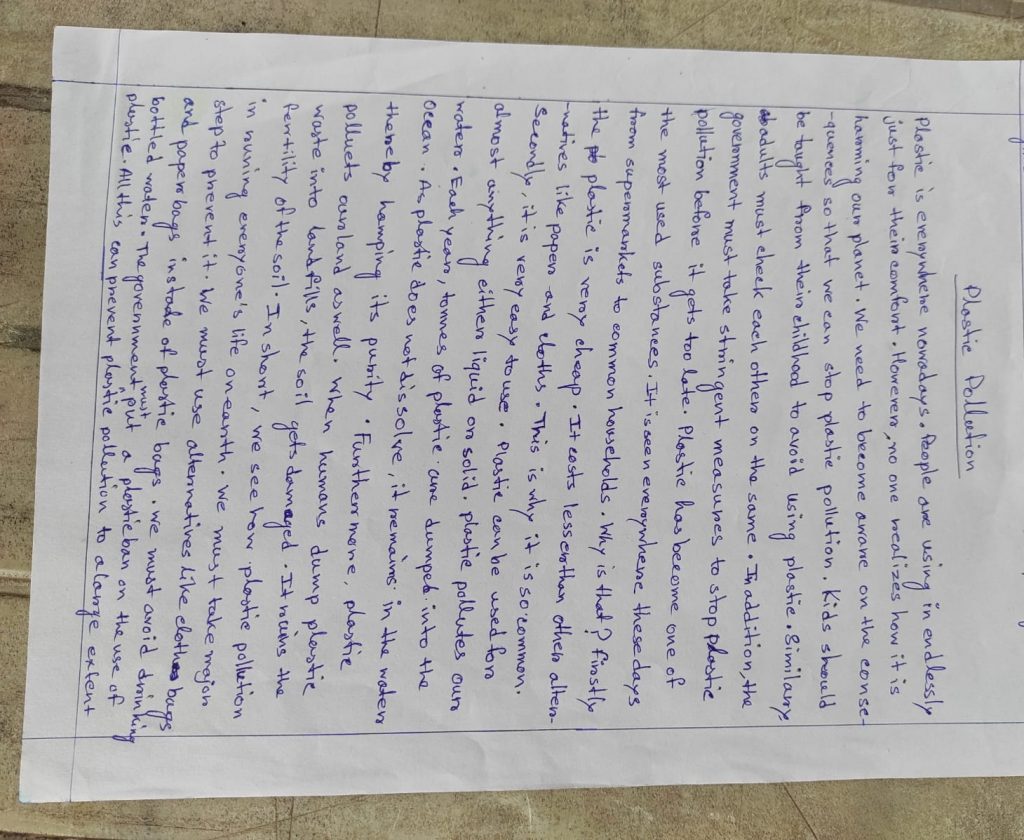 Plastic Pollution
Plastic is everywhere nowadays. People are using in endlessly
just for their comfort. However, no one realizes how it is
harming our planet. We need to become aware on the conse-
-quences so that we can stop plastic pollution. Kids should
be taught from their chilhood to avoid using plastic. Similary,
adults must check each other on the same. In addition, the
government must take stringent measures to stop plastic
pollution before it gets too late. Plastic has become one of
the most used substances. It is seen everywhere these days
from supermarkets to common households. Why is that? firstly
the plastic is very cheap. It costs lesser than other alter-
-natives like paper and cloths. This is why it is so common.
Secondly, it is very easy to use. Plastic can be used for
almost anything either liquid or solid. plastic pollutes our
waters. Each years, tonnes of plastic are dumped into the
Ocean. As plastic does not dissolve, it remains in the water
thereby hamping its purity. Furthermore, plastic
polluets our land as well. When humans dump plastic
waste into landfills, the soil gets damaged. It ruins the
ferrility of the soil. In short, we see how plastic pollution
in ruining everyone's life on earth. We must take major
step to prevent it. We must use alternatives like cloths bags
and paper bags instade of plastic bags. we must avoid drinking
bottled water. The government must put a plastic ban on the use of
plastic. All this can prevent plastic pollution to a large extent